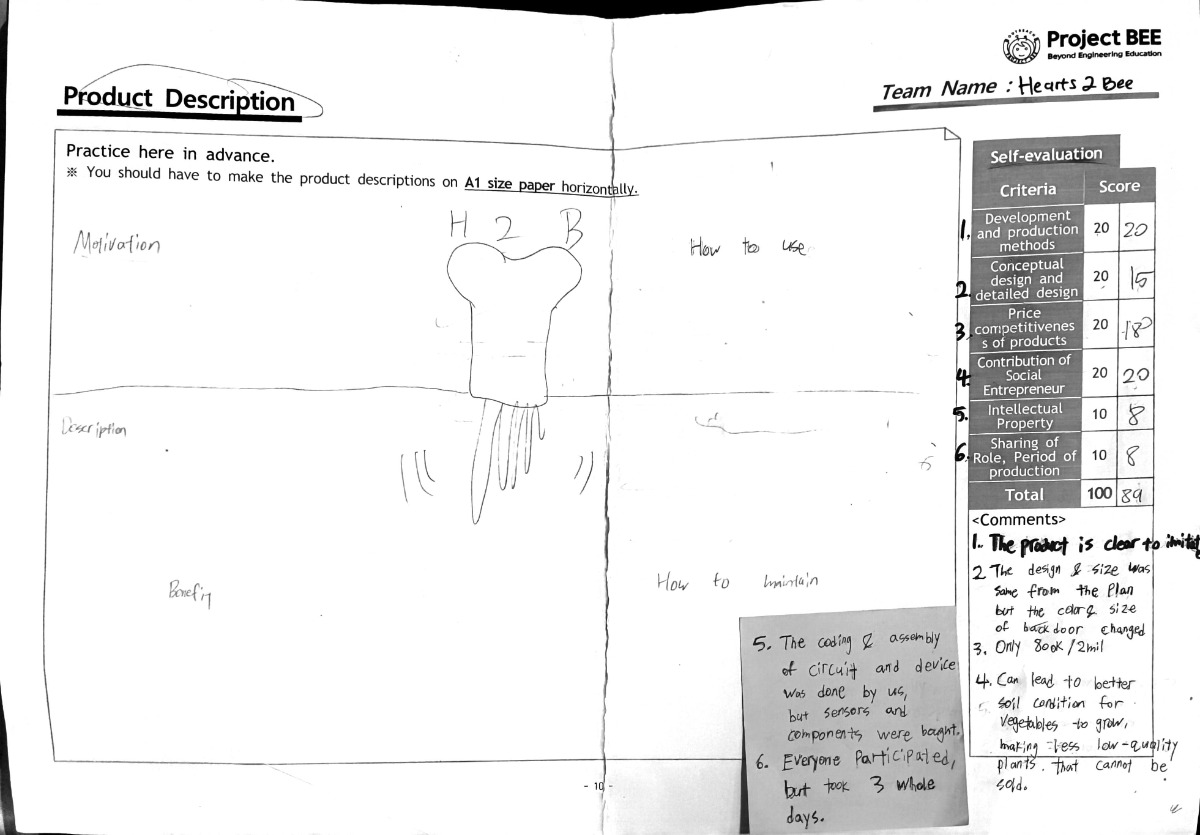 Project BEE
Beyond Engineering Education
Product Description
Team Name : Hearts 2 Bee
Practice here in advance.
※ You should have to make the product descriptions on A1 size paper horizontally.
Motivation
H 2 B
How to use
Description
Benefit
How to maintain
Self-evaluation
Criteria Score
1. Development and production methods 20 20
2. Conceptual design and detailed design 20 15
3. Price competitivenes s of products 20 18
4. Contribution of Social Entrepreneur 20 20
5. Intellectual Property 10 8
6. Sharing of Role, Period of production 10 8
Total 100 89
<Comments>
1. The product is clear to
2 The design & size was
same from the Plan
but the color & size
of back door changed
3. Only 800K/2mil
4. Can lead to better
soil condition for
vegetables to grow,
making less low-quality
plants that cannot be
sold.
5. The coding & assembly
of circuit and device
was done by us,
but sensors and
components were bought.
6. Everyone Participated,
but took 3 whole
days.
- 10 -